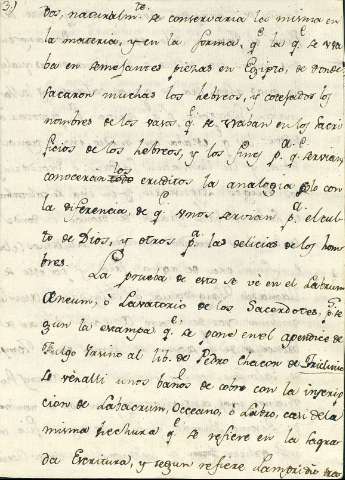 3)
dos, naturalm.te se conservaria la misma en
la materia, y en la forma, q.e la q.e se usa
ba en semejantes piezas en Egipto, de donde
sacaron muchas los hebreos, y cotejados los
nombres de los vasos q.e se usaban en los sacri
ficios de los hebreos, y los fines p.a q.e servian,
conoceran los eruditos la analogia solo con
la diferencia de q.e unos servian p.a el cul
to de Dios, y otros p.a las delicias de los hom
bres.
La prueba de esto se vè en el Labrum
Æneum, ò Lavatorio de los Sacerdotes, se
gun la estampa q.e se pone en el apendice de
Fulgo Vrsino al lib. de Pedro Chacon de Triclinio
se vè alli unos baños de cobre con la inscrip
cion de Labacrum, Occeano, ò Labro, casi de la
misma hechura q.e se refiere en la Sagra
da Escritura, y segun refiere Lampridio